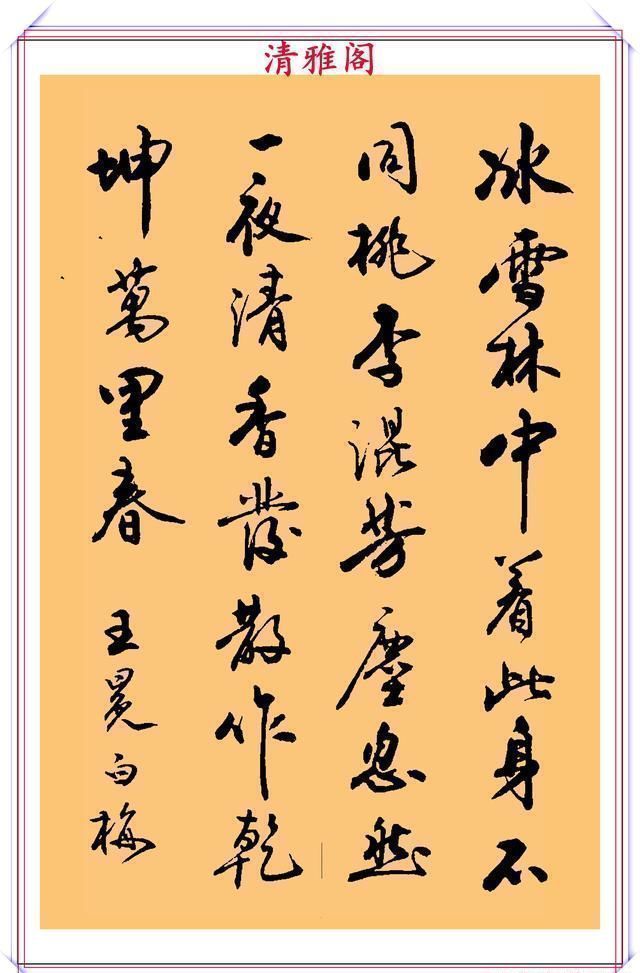 清雅阁
冰雪林中着此身不
同桃李混芳塵忽然
一夜清香發散作乾
坤萬里春 王冕白梅